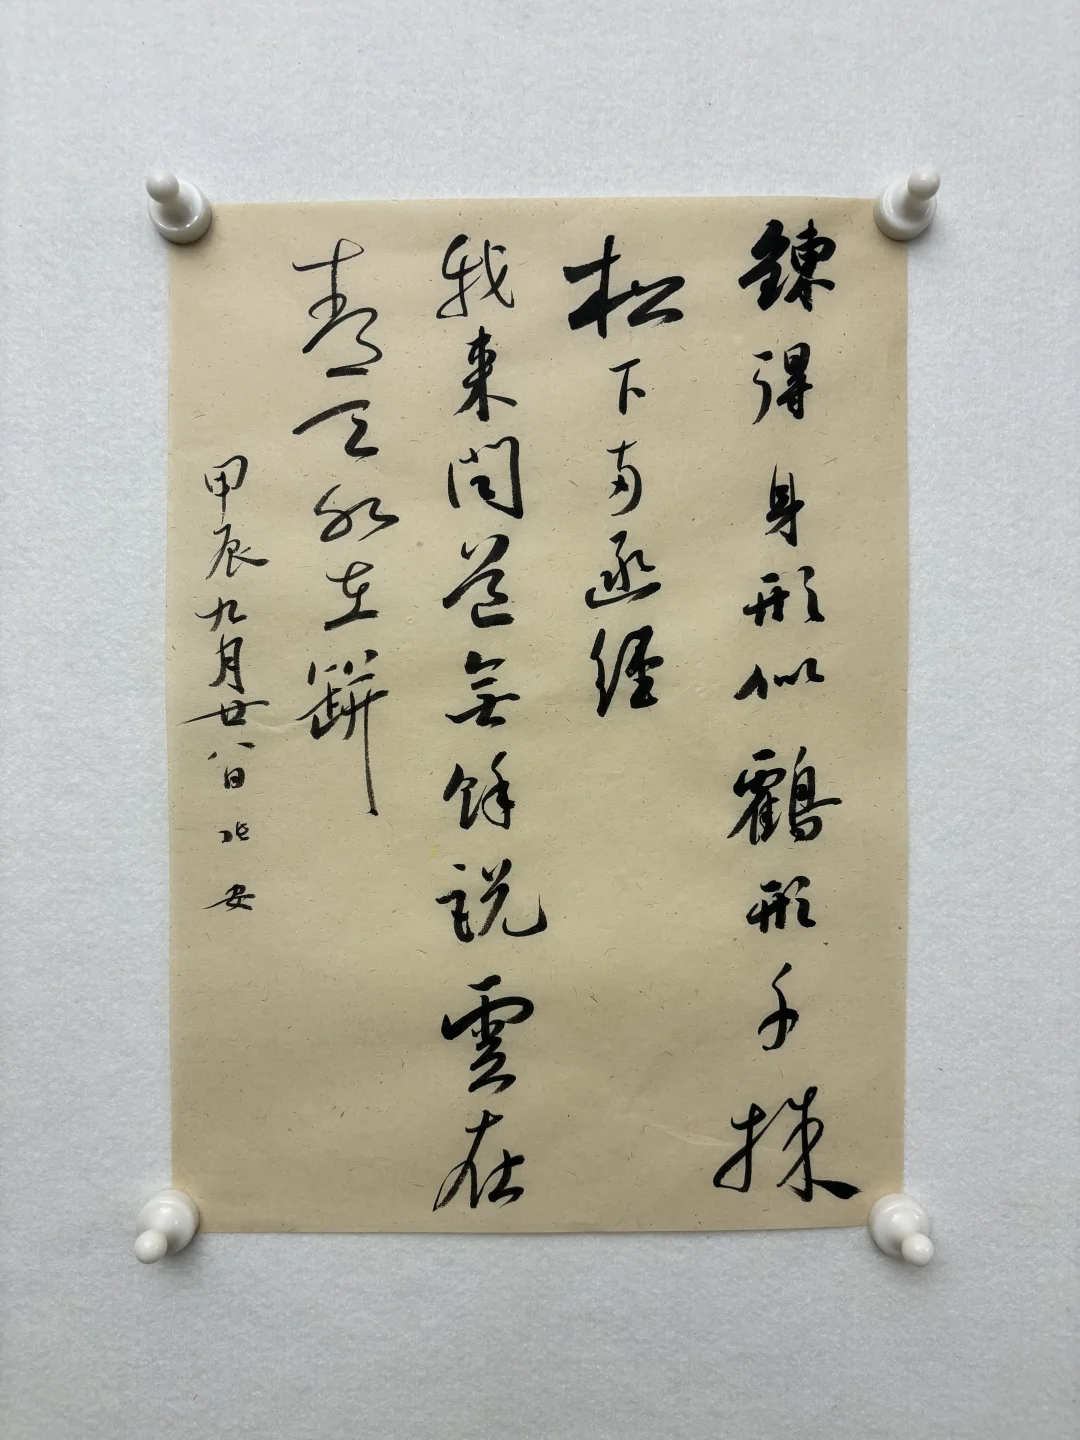 鍊得身形似鶴形千株
松下両函經
我来問道無餘説雲在
青天水在缾
甲辰九月廿八日北安